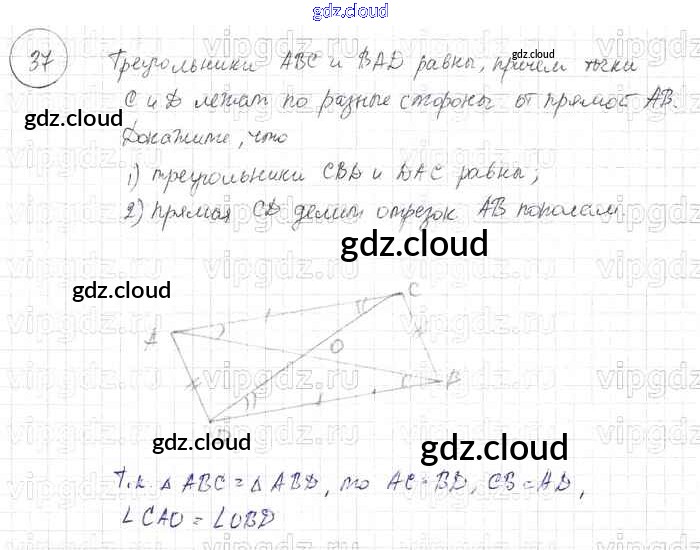 gdz.cloud
37 Треугольники ABC и BAD равны, причём точки
gdz.cloud
C и D лежат по разные стороны от прямой AB.
gdz.cloud
Докажите, что
1) треугольники CBD и DAC равны;
2) прямая CD делит отрезок AB пополам.
gdz.cloud
vipgdz.ru
gdz.cloud
A C
O
B
D
gdz.cloud
gdz.cloud
Т.к. △ ABC = △ ABD, то AC = BD, CB = AD,
∠CAO = ∠OBD